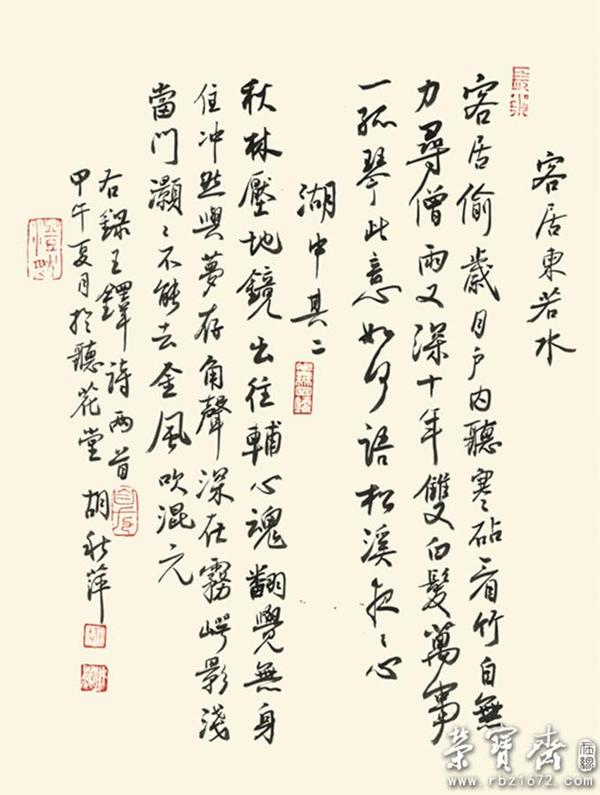 客居東若水
客居偷歲月戶内聽寒砧看竹自無
力尋僧雨又深十年雙白髮萬事
一孤琴此意如何語松溪夜〻心
湖中其二
秋林壓地鏡出往輔心魂翻覺無身
住冲然與夢存角聲深在霧崿影淺
當門灝〻不能去金風吹混元
右錄王鐸詩兩首
甲午夏月於聽花堂 胡秋萍
榮寶齋
www.rbz1672.com